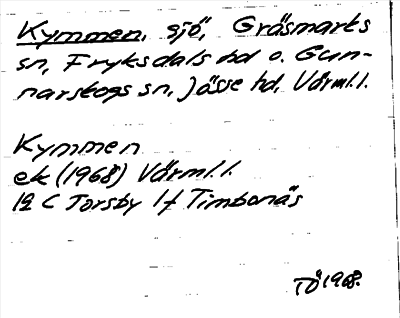 Kymmen, sjö, Gräsmarks
sn, Fryksdals hd o. Gun-
narskogs sn, Jösse hd, Värml. l.
Kymmen
ek (1968) Värml. l.
12 C Torsby 1f Timbonäs
TÖ 1968.